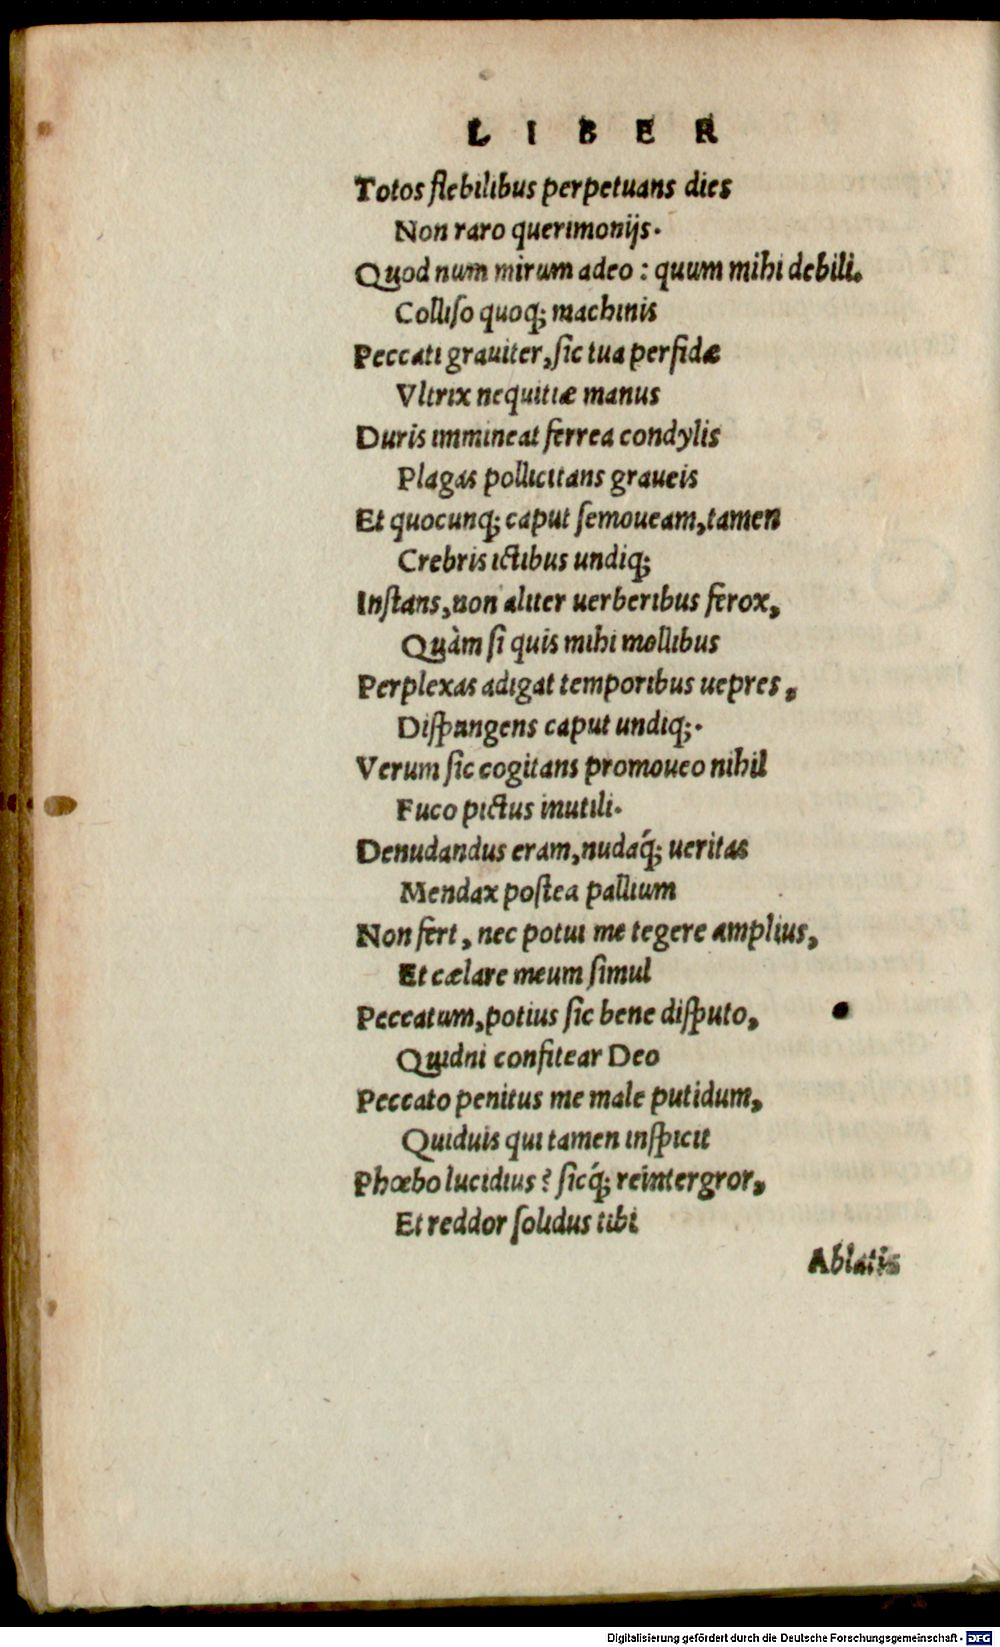 LIBER
Totos flebilibus perpetuans dies
Non raro querimonijs.
Quod num mirum adeo : quum mihi debili.
Colliſo quoq; machinis
Peccati grauiter, ſic tua perfidæ
Vltrix nequitiæ manus
Duris immineat ferrea condylis
Plagas pollicitans graueis
Et quocunq; caput ſemoueam, tamen
Crebris ictibus undiq;
Inſtans, non aliter uerberibus ferox,
Quàm ſi quis mihi mollibus
Perplexas adigat temporibus uepres,
Diſpungens caput undiq;.
Verum ſic cogitans promoueo nihil
Fuco pictus inutili.
Denudandus eram, nudaq́; ueritas
Mendax poſtea pallium
Non fert, nec potui me tegere amplius,
Et cælare meum ſimul
Peccatum, potius ſic bene diſputo,
Quidni confitear Deo
Peccato penitus me male putidum,
Quiduis qui tamen inſpicit
Phœbo lucidius? ſicq́; reintergror,
Et reddor ſolidus tibi
Ablatis
Digitalisierung gefördert durch die Deutsche Forschungsgemeinschaft - DFG